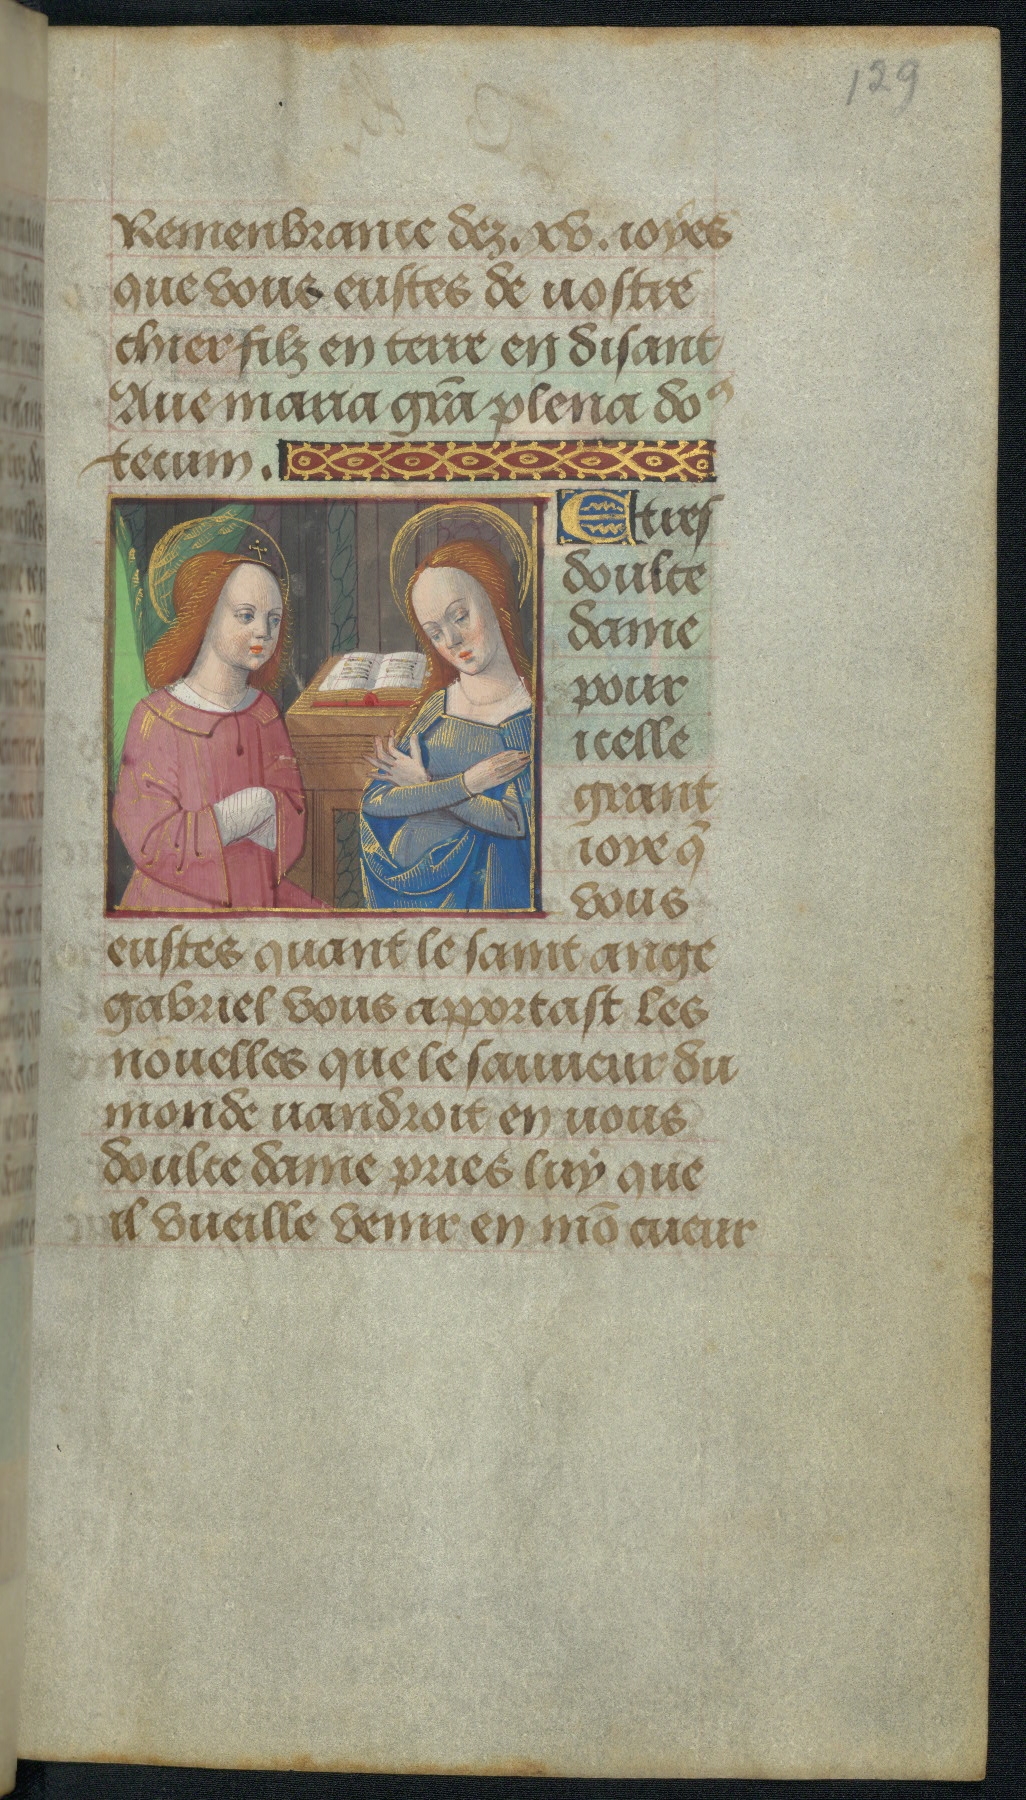 129
Remenbrance dez . xv . ioyes
que vous eustes de vostre
chier filz en terre en disant
Aue maria grā plena doꝰ
tecum .
E tres
doulce
dame
pour
icelle
grant
ioye q̄
vous
eustes quant le saint ange
gabriel vous apportast les
nouelles que le sauueur du
monde uandroit en uous
doulce dame pries luy que
il vueille venir en mō cueur